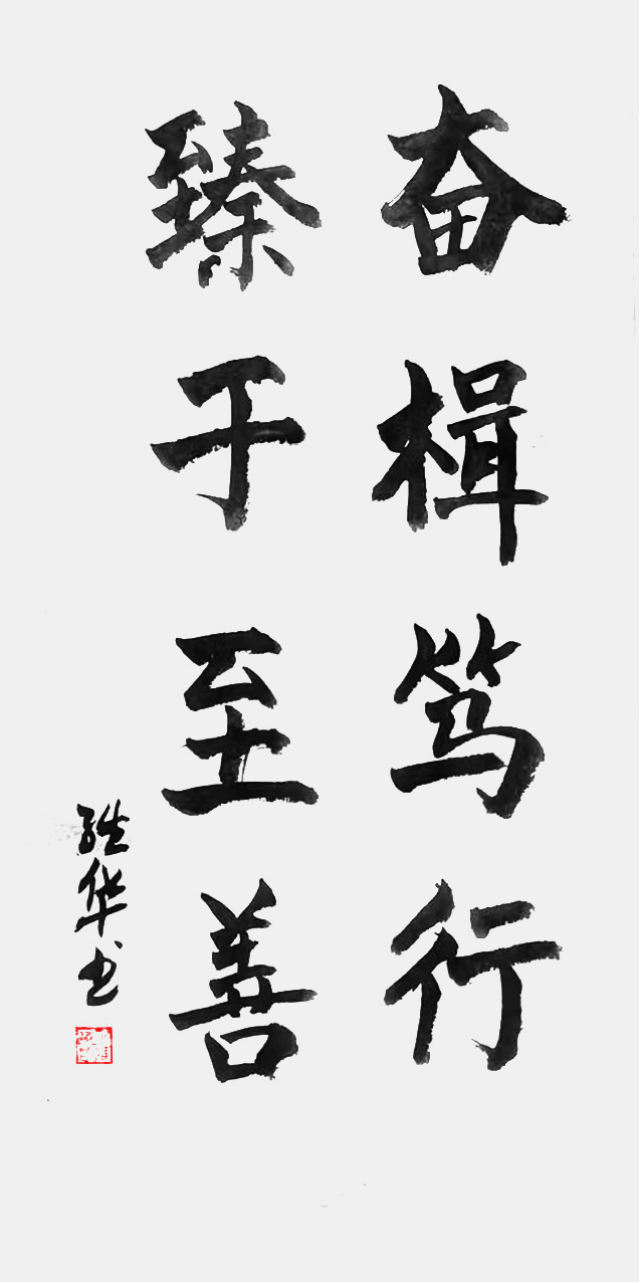 奋楫笃行
臻于至善
胜华书